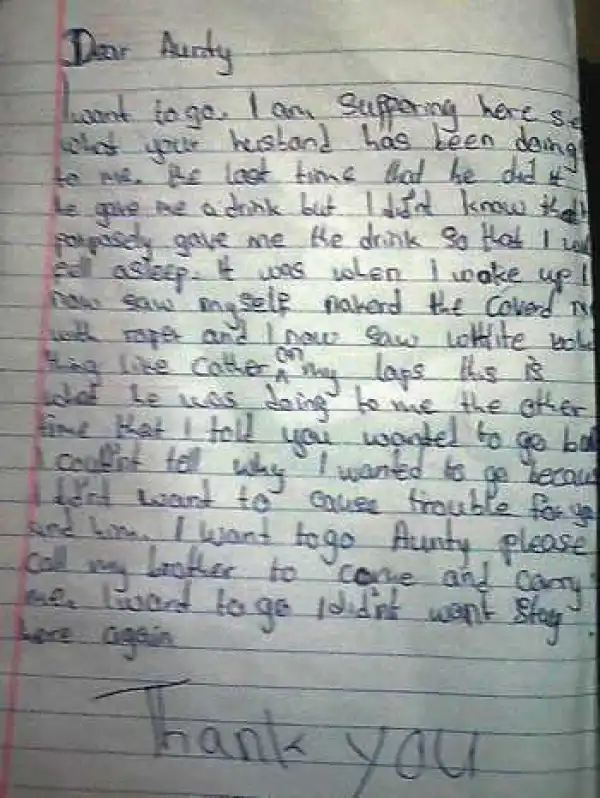 Dear Aunty
I want to go. I am suppering here se
what your husband has been doing
to me. the last time that he did it
he gave me a drink but I did't know that
porposely gave me the drink so that I
fell asleep. it was when I woke up I
now saw myself nakerd the coverd
with raper and I now saw whtite
thing like cather on my laps this is
what he was doing to me the other
time that I told you wanted to go
I could't tell why I wanted to go becau
I did't want to cause trouble for yo
and him. I want to go Aunty please
call my brother to come and carry
me. I want to go I did'nt want stay
here again
Thank you